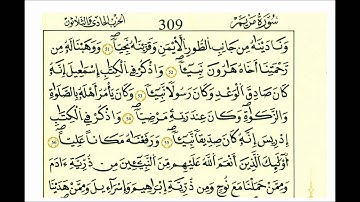 الحزب الحادي والثلاثون 309 سورة مريم
وَنَٰدَيْنَٰهُ مِن جَانِبِ ٱلطُّورِ ٱلْأَيْمَنِ وَقَرَّبْنَٰهُ نَجِيًّا ٥١ وَوَهَبْنَا لَهُۥ مِن
رَّحْمَتِنَا أَخَاهُ هَٰرُونَ نَبِيًّا ٥٢ وَٱذْكُرْ فِي ٱلْكِتَٰبِ إِسْمَٰعِيلَ إِنَّهُۥ
كَانَ صَادِقَ ٱلْوَعْدِ وَكَانَ رَسُولًا نَّبِيًّا ٥٣ وَكَانَ يَأْمُرُ أَهْلَهُۥ بِٱلصَّلَوٰةِ
وَٱلزَّكَوٰةِ وَكَانَ عِندَ رَبِّهِۦ مَرْضِيًّا ٥٤ وَٱذْكُرْ فِي ٱلْكِتَٰبِ
إِدْرِيسَ إِنَّهُۥ كَانَ صِدِّيقًا نَّبِيًّا ٥٥ وَرَفَعْنَٰهُ مَكَانًا عَلِيًّا ٥٦
أُوْلَٰئِكَ ٱلَّذِينَ أَنْعَمَ ٱللَّهُ عَلَيْهِم مِّنَ ٱلنَّبِيِّينَ مِن ذُرِّيَّةِ ءَادَمَ
وَمِمَّنْ حَمَلْنَا مَعَ نُوحٍ وَمِن ذُرِّيَّةِ إِبْرَٰهِيمَ وَإِسْرَٰءِيلَ وَمِمَّنْ هَدَيْنَا